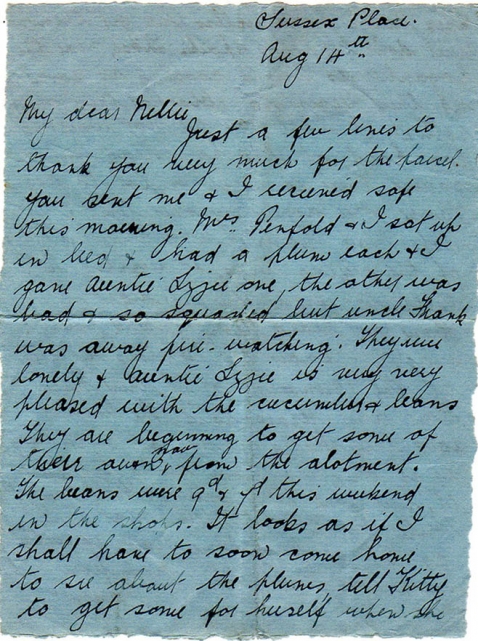 Sussex Place.
Aug 14th
My dear Nellie
Just a few lines to
thank you very much for the parcel
you sent me & I received safe
this morning. Mrs Penfold & I sat up
in bed & had a plum each & I
gave Auntie Lizzie one, the other was
bad & so squashed, but uncle Thank
was away fire-watching. They were
lonely & auntie Lizzie is very very
pleased with the cucumber & beans
They are beginning to get some of
their own now from the alotment.
The beans were 9d & this weekend
in the shops. It looks as if I
shall have to soon come home
to see about the plums, tell Kitty
to get some for herself when she